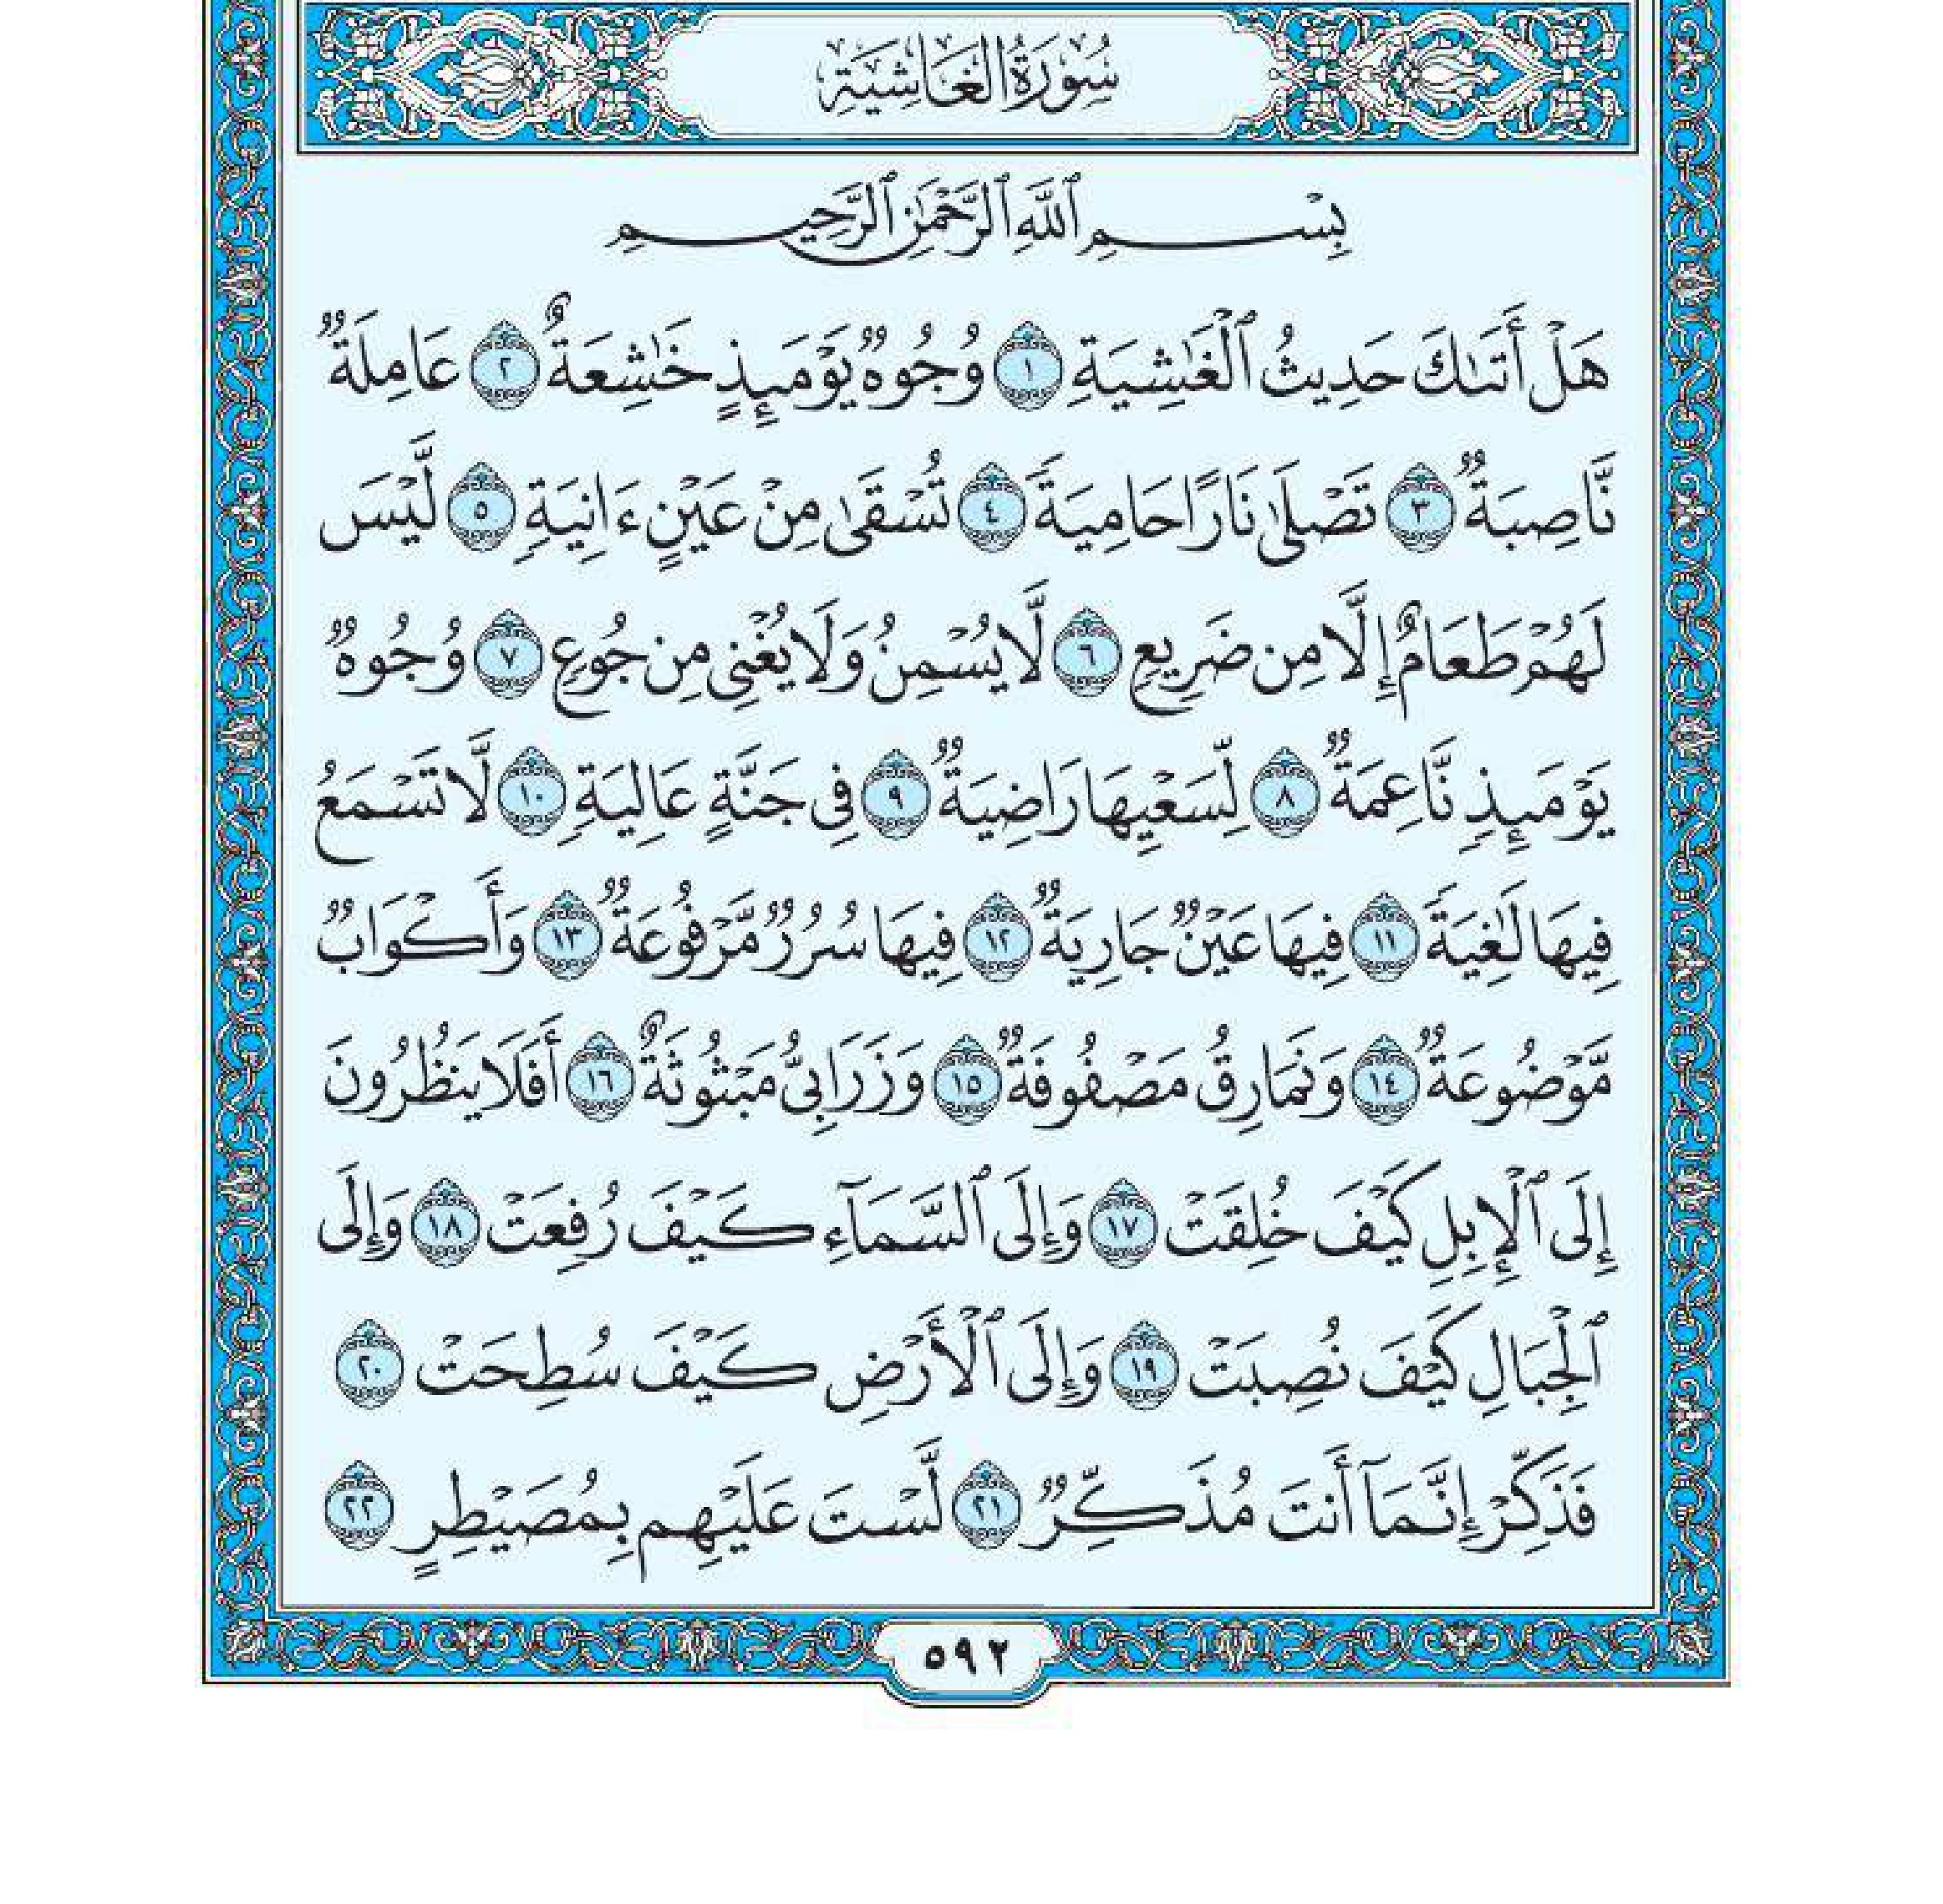 سُورَةُ الغَاشِيَةِ
بِسْمِ ٱللَّهِ ٱلرَّحْمَٰنِ ٱلرَّحِيمِ
هَلْ أَتَىٰكَ حَدِيثُ ٱلْغَٰشِيَةِ ١ وُجُوهٌ يَوْمَئِذٍ خَٰشِعَةٌ ٢ عَامِلَةٌ
نَّاصِبَةٌ ٣ تَصْلَىٰ نَارًا حَامِيَةً ٤ تُسْقَىٰ مِنْ عَيْنٍ ءَانِيَةٍ ٥ لَّيْسَ
لَهُمْ طَعَامٌ إِلَّا مِن ضَرِيعٍ ٦ لَّا يُسْمِنُ وَلَا يُغْنِى مِن جُوعٍ ٧ وُجُوهٌ
يَوْمَئِذٍ نَّاعِمَةٌ ٨ لِّسَعْيِهَا رَاضِيَةٌ ٩ فِى جَنَّةٍ عَالِيَةٍ ١٠ لَّا تَسْمَعُ
فِيهَا لَٰغِيَةً ١١ فِيهَا عَيْنٌ جَارِيَةٌ ١٢ فِيهَا سُرُرٌ مَّرْفُوعَةٌ ١٣ وَأَكْوَابٌ
مَّوْضُوعَةٌ ١٤ وَنَمَارِقُ مَصْفُوفَةٌ ١٥ وَزَرَابِىُّ مَبْثُوثَةٌ ١٦ أَفَلَا يَنظُرُونَ
إِلَى ٱلْإِبِلِ كَيْفَ خُلِقَتْ ١٧ وَإِلَى ٱلسَّمَآءِ كَيْفَ رُفِعَتْ ١٨ وَإِلَى
ٱلْجِبَالِ كَيْفَ نُصِبَتْ ١٩ وَإِلَى ٱلْأَرْضِ كَيْفَ سُطِحَتْ ٢٠
فَذَكِّرْ إِنَّمَآ أَنتَ مُذَكِّرٌ ٢١ لَّسْتَ عَلَيْهِم بِمُصَيْطِرٍ ٢٢
٥٩٢